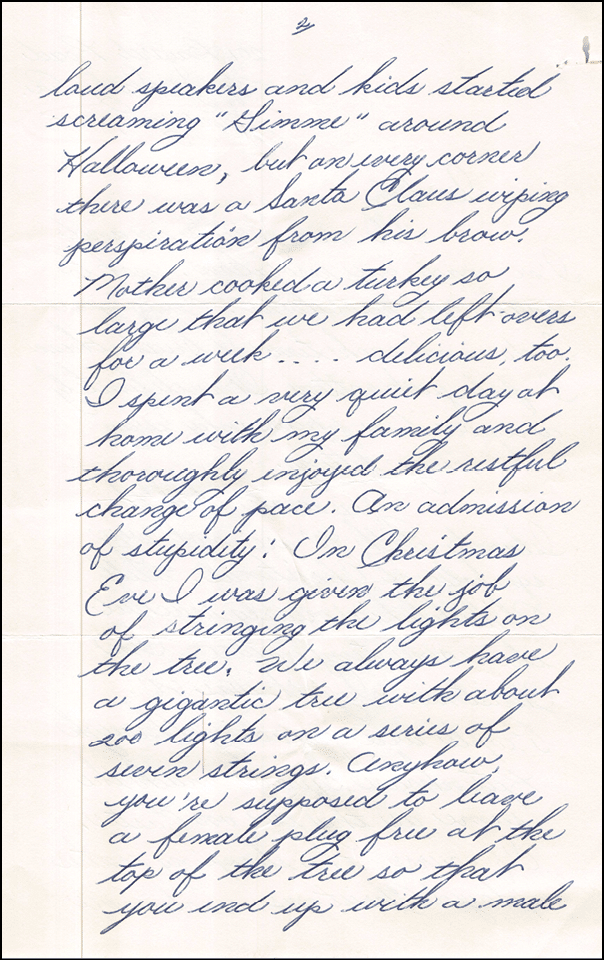 2
loud speakers and kids started
screaming "Gimme" around
Halloween, but on every corner
there was a Santa Claus wiping
perspiration from his brow.
Mother cooked a turkey so
large that we had left-overs
for a week .... delicious, too.
I spent a very quiet day at
home with my family and
thoroughly enjoyed the restful
change of pace. An admission
of stupidity: On Christmas
Eve I was given the job
of stringing the lights on
the tree. We always have
a gigantic tree with about
200 lights on a series of
seven strings. Anyhow,
you're supposed to leave
a female plug free at the
top of the tree so that
you end up with a male